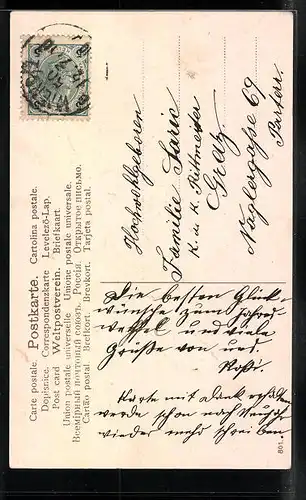 Carte postale. Postkarte. Cartolina postale.
Dopisnice. Correspondenzkarte Levelező-Lap.
Post card Weltpostverein. Briefkaart.
Union postale universelle Unione postale universale.
Всемірный почтовый союзъ. Россія. Открытое письмо.
Cartão postal Brefkort. Brevkort. Tarjeta postal.
Hochwohlgeboren
Familie
K. u. K. Rittmeister
Graz
69
Parterr.
Die besten Glück-
wünsche zum Jahres
wechsel und viele
Grüße von uns.
Karte mit Dank erhalten
werde schon nach Neujahr
wieder mehr schreiben
801.